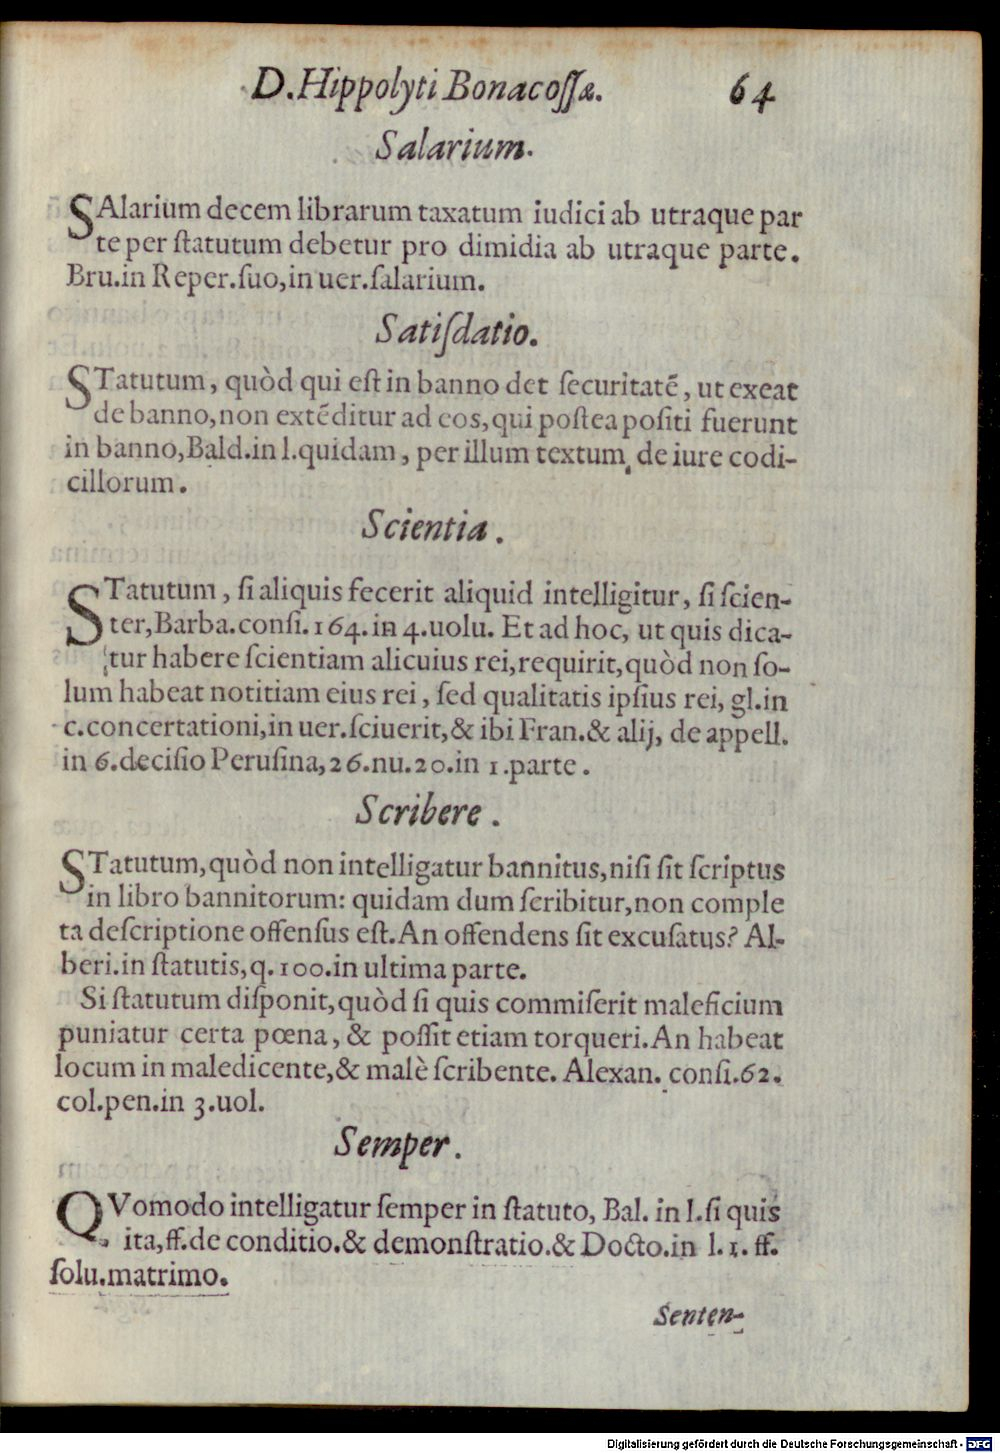 D. Hippolyti Bonacoſſæ. 64
Salarium.
SAlarium decem librarum taxatum iudici ab utraque par
te per ſtatutum debetur pro dimidia ab utraque parte.
Bru.in Reper.ſuo,in uer.ſalarium.
Satiſdatio.
STatutum, quòd qui eſt in banno det ſecuritatē, ut exeat
de banno,non extēditur ad eos,qui poſtea poſiti fuerunt
in banno,Bald.in l.quidam, per illum textum, de iure codi-
cillorum.
Scientia.
STatutum, ſi aliquis fecerit aliquid intelligitur, ſi ſcien-
ter,Barba.conſi.164.in 4.uolu. Et ad hoc, ut quis dica-
tur habere ſcientiam alicuius rei,requirit,quòd non ſo-
lum habeat notitiam eius rei, ſed qualitatis ipſius rei, gl.in
c.concertationi,in uer.ſciuerit,& ibi Fran.& alij, de appell.
in 6.deciſio Peruſina,26.nu.20.in 1.parte.
Scribere.
STatutum,quòd non intelligatur bannitus,niſi ſit ſcriptus
in libro bannitorum: quidam dum ſcribitur,non comple
ta deſcriptione offenſus eſt.An offendens ſit excuſatus? Al-
beri.in ſtatutis,q.100.in ultima parte.
Si ſtatutum diſponit,quòd ſi quis commiſerit maleficium
puniatur certa pœna, & poſſit etiam torqueri.An habeat
locum in maledicente,& malè ſcribente. Alexan. conſi.62.
col.pen.in 3.uol.
Semper.
QVomodo intelligatur ſemper in ſtatuto, Bal. in l.ſi quis
ita,ff.de conditio.& demonſtratio.& Docto.in l.1.ff.
ſolu.matrimo.
Senten-
Digitalisierung gefördert durch die Deutsche Forschungsgemeinschaft - DFG